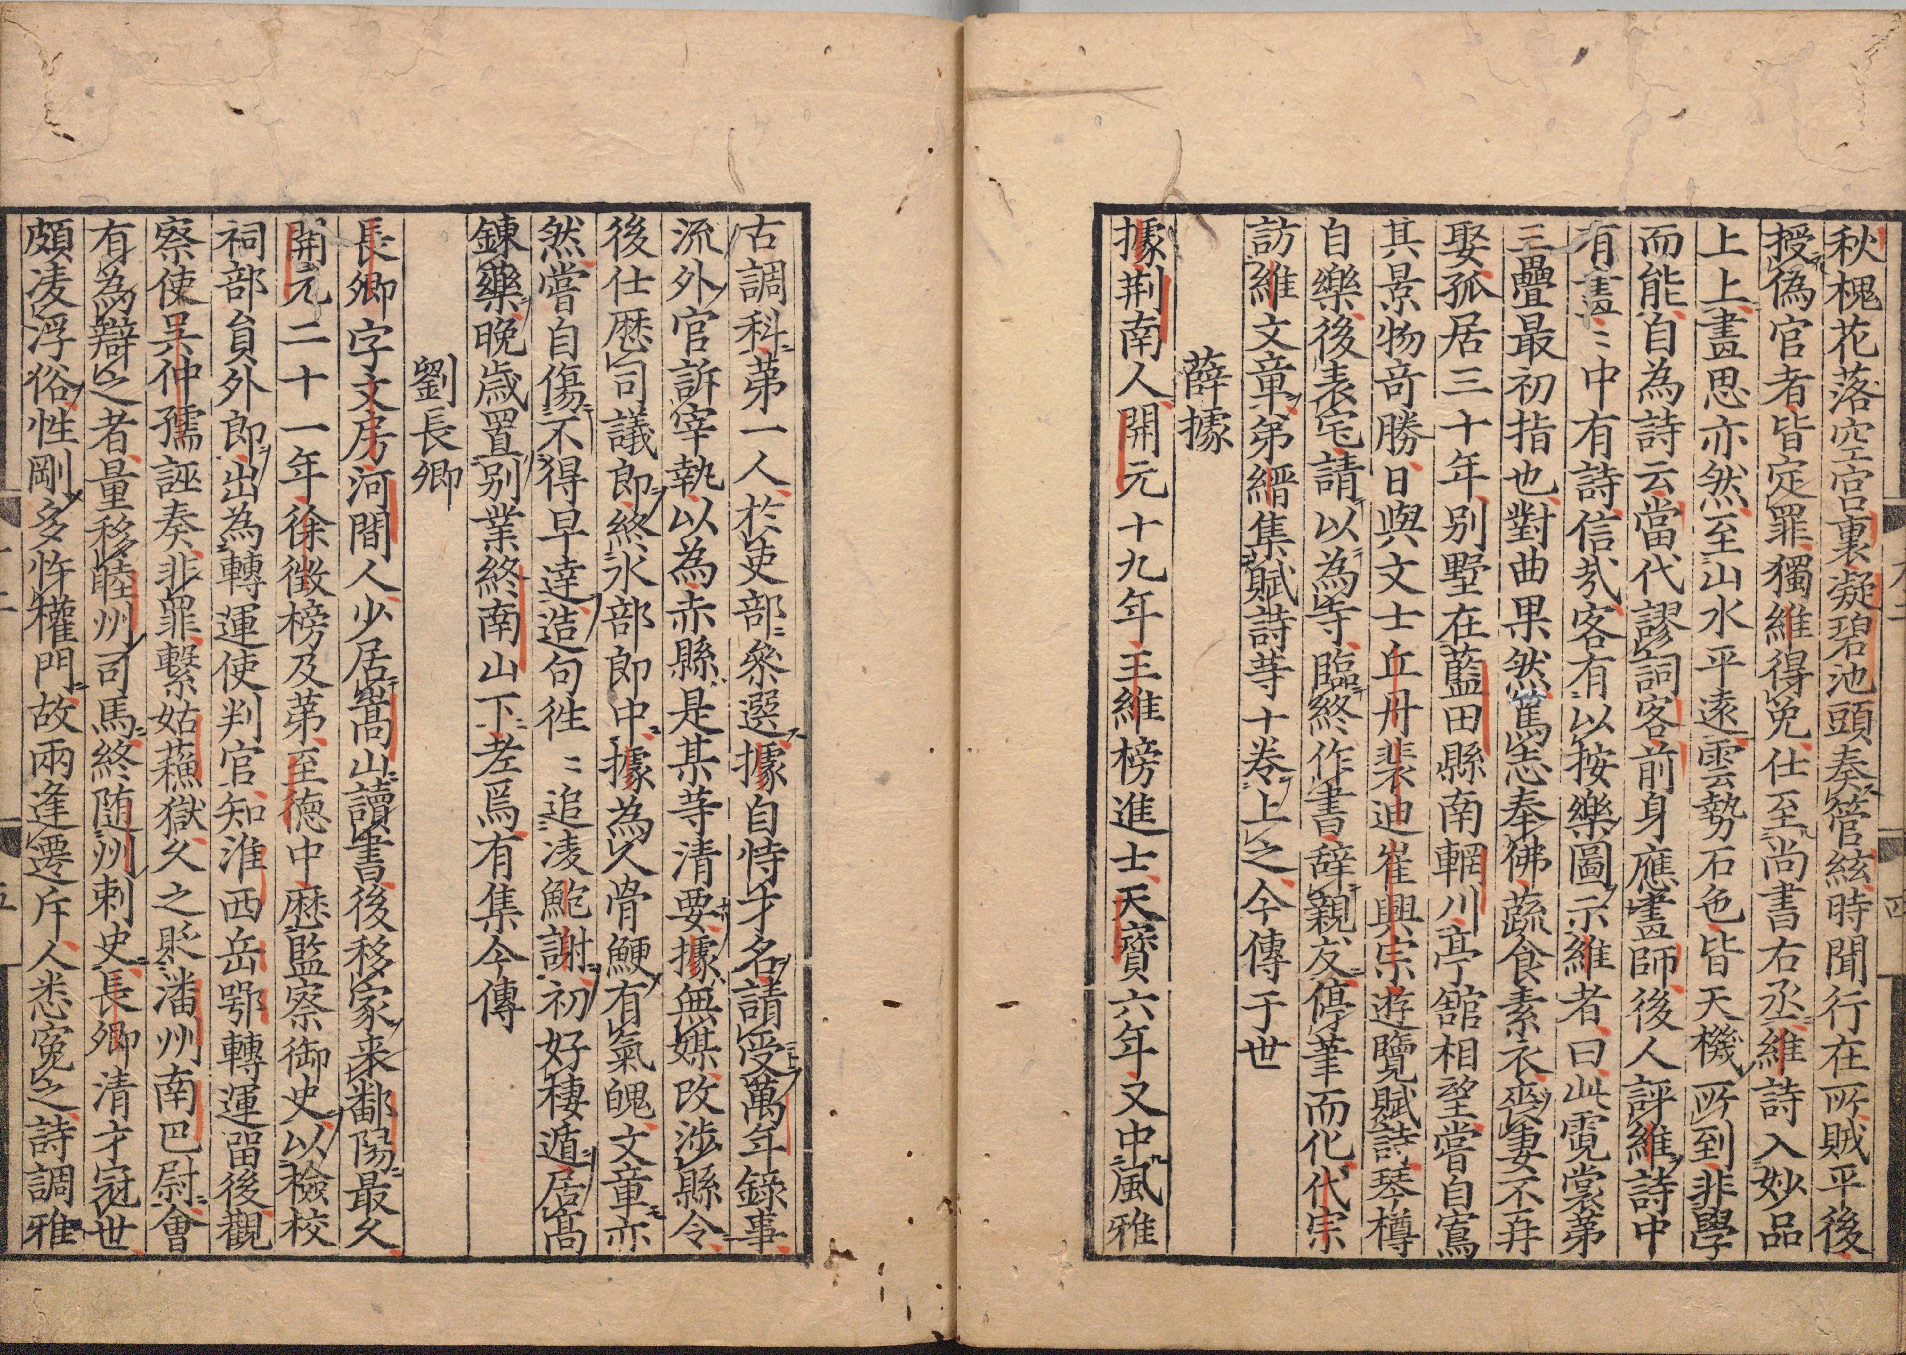 秋槐花落空宮裏凝碧池頭奏管絃時聞行在所賊平後
授偽官者皆定罪獨維得免仕至尚書右丞維詩入妙品
上上畫思亦然至山水平遠雲勢石色皆天機所到非學
而能自為詩云當代謬詞客前身應畫師後人評維詩中
有畫〻中有詩信㢤客有以按樂圖示維者曰此霓裳第
三疊最初指也對曲果然篤志奉佛蔬食素衣喪妻不再
娶孤居三十年別墅在藍田縣南輞川亭舘相望嘗自寫
其景物竒勝日與文士丘丹裴迪崔興宗遊覽賦詩琴樽
自樂後表宅請以為寺臨終作書辭親友停筆而化代宗
訪維文章弟縉集賦詩等十卷上之今傳于世
薛據
據荆南人開元十九年王維榜進士天寶六年又中風雅
古調科第一人於吏部參選據自恃才名請受萬年錄事
流外官訴宰執以為赤縣是某等清要據無媒改涉縣令
後仕歷司議郎終水部郎中據為人骨鯁有氣魄文章亦
然嘗自傷不得早達造句往〻追凌鮑謝初好棲遁居高
鍊藥晚歲置別業終南山下老焉有集今傳
劉長卿
長卿字文房河間人少居嵩山讀書後移家来鄱陽最久
開元二十一年徐徵榜及第至德中歷監察御史以檢校
祠部員外郎出為轉運使判官知淮西岳鄂轉運留後觀
察使吳仲孺誣奏非罪繫姑蘓獄久之貶潘州南巴尉會
有為辯之者量移睦州司馬終随州刺史長卿清才冠世
頗凌浮俗性剛多忤權門故兩逢遷斥人悉寃之詩調雅